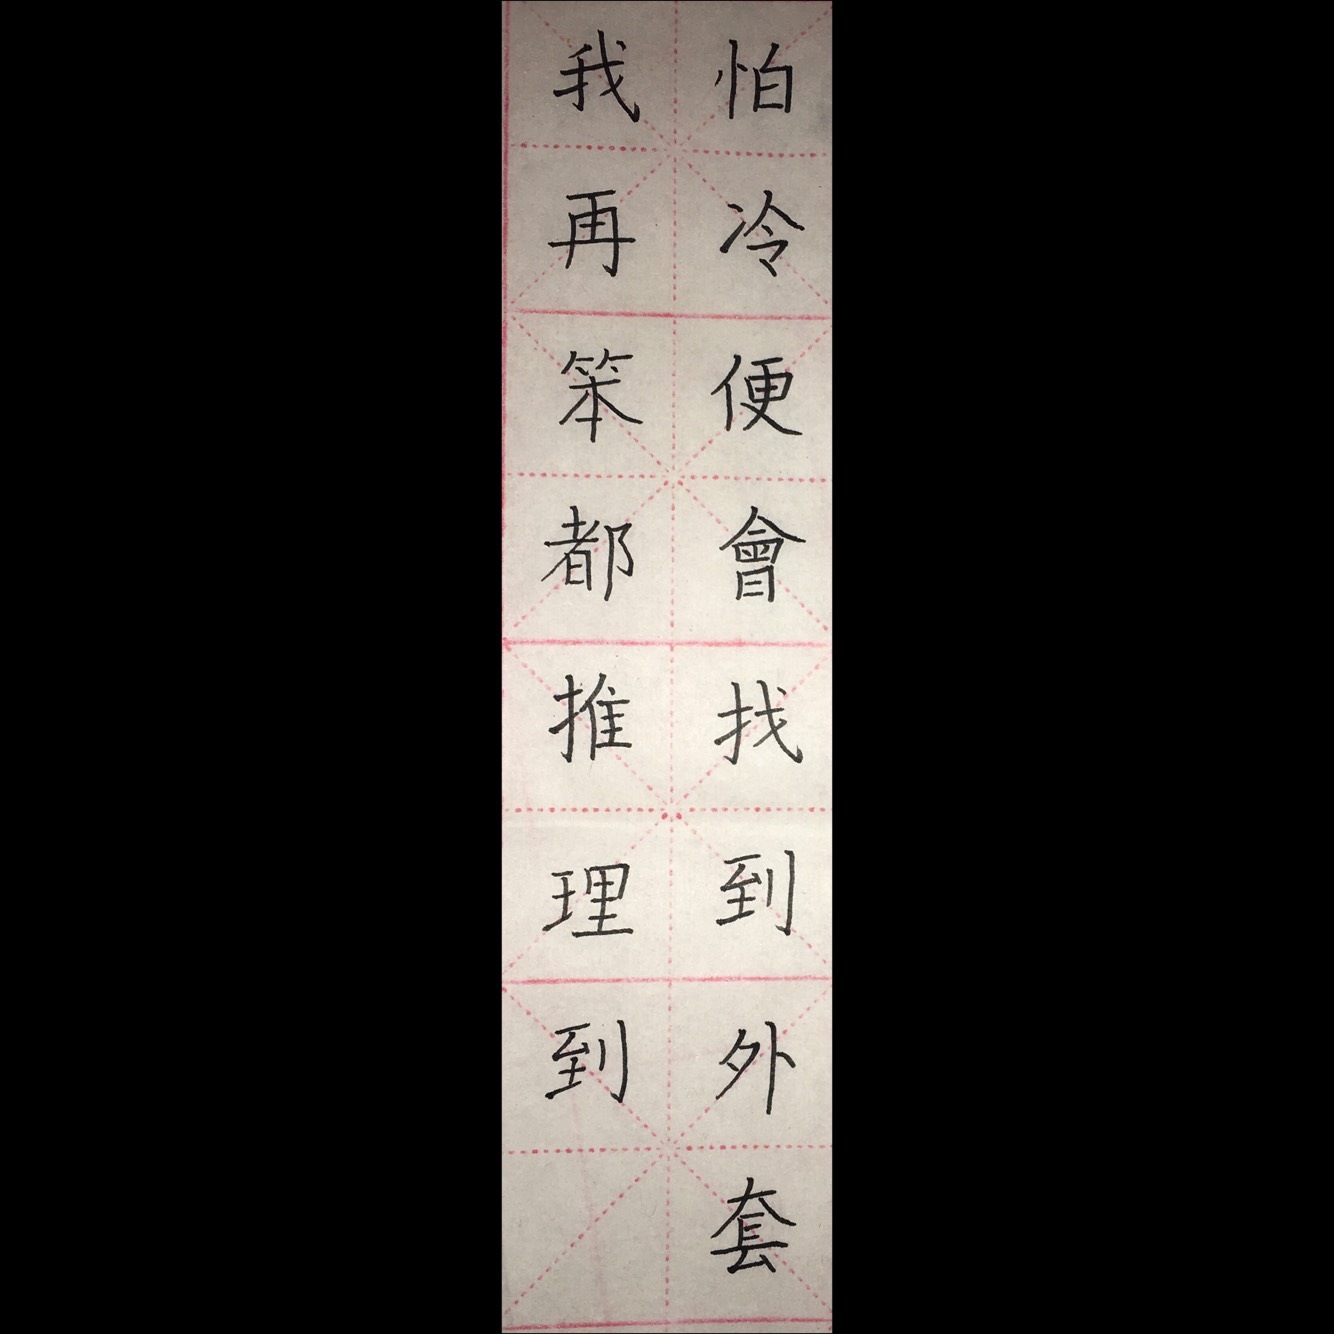 怕冷便會找到外套
我再笨都推理到